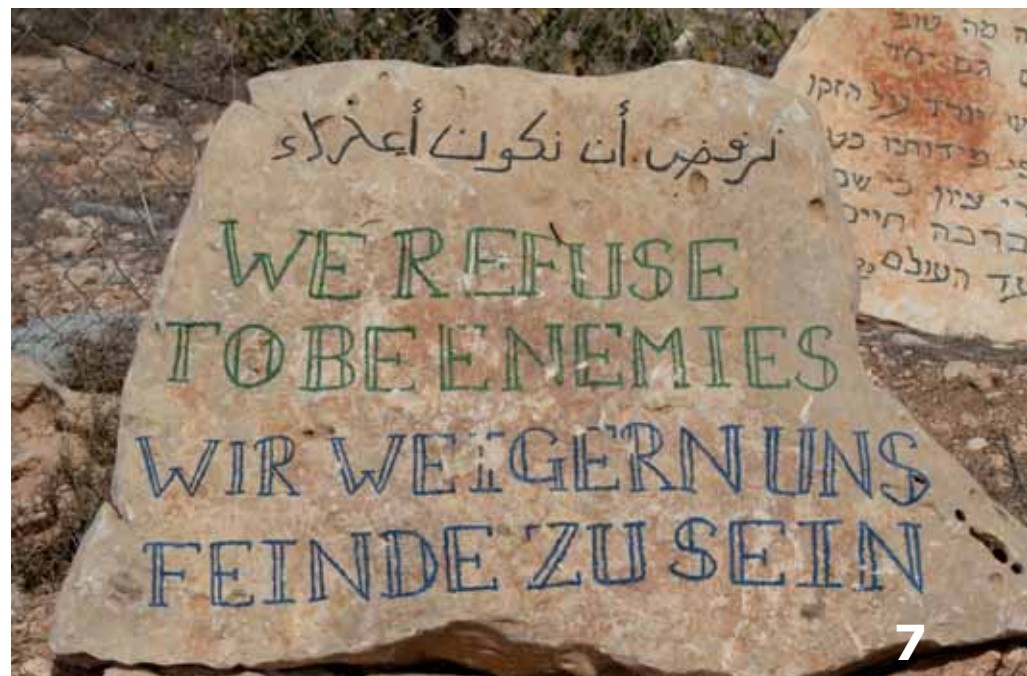 نرفض أن نكون أعداء
WE REFUSE
TO BE ENEMIES
WIR WEIGERN UNS
FEINDE ZU SEIN
מה טוב
גם יחד
יורד על הזקן
מידותיו כט
ציון כי שם
ברכה חיים
עד העולם
7